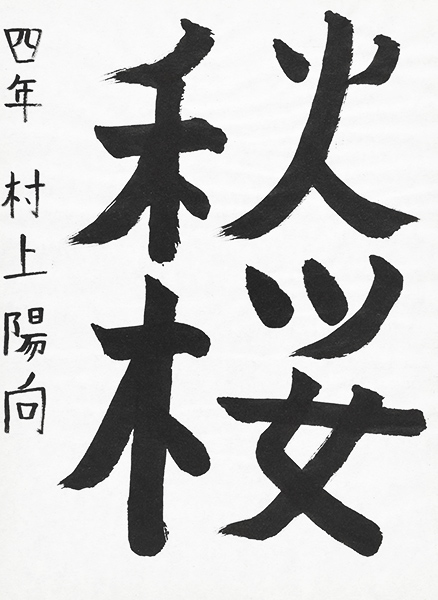 秋桜
四年 村上陽向